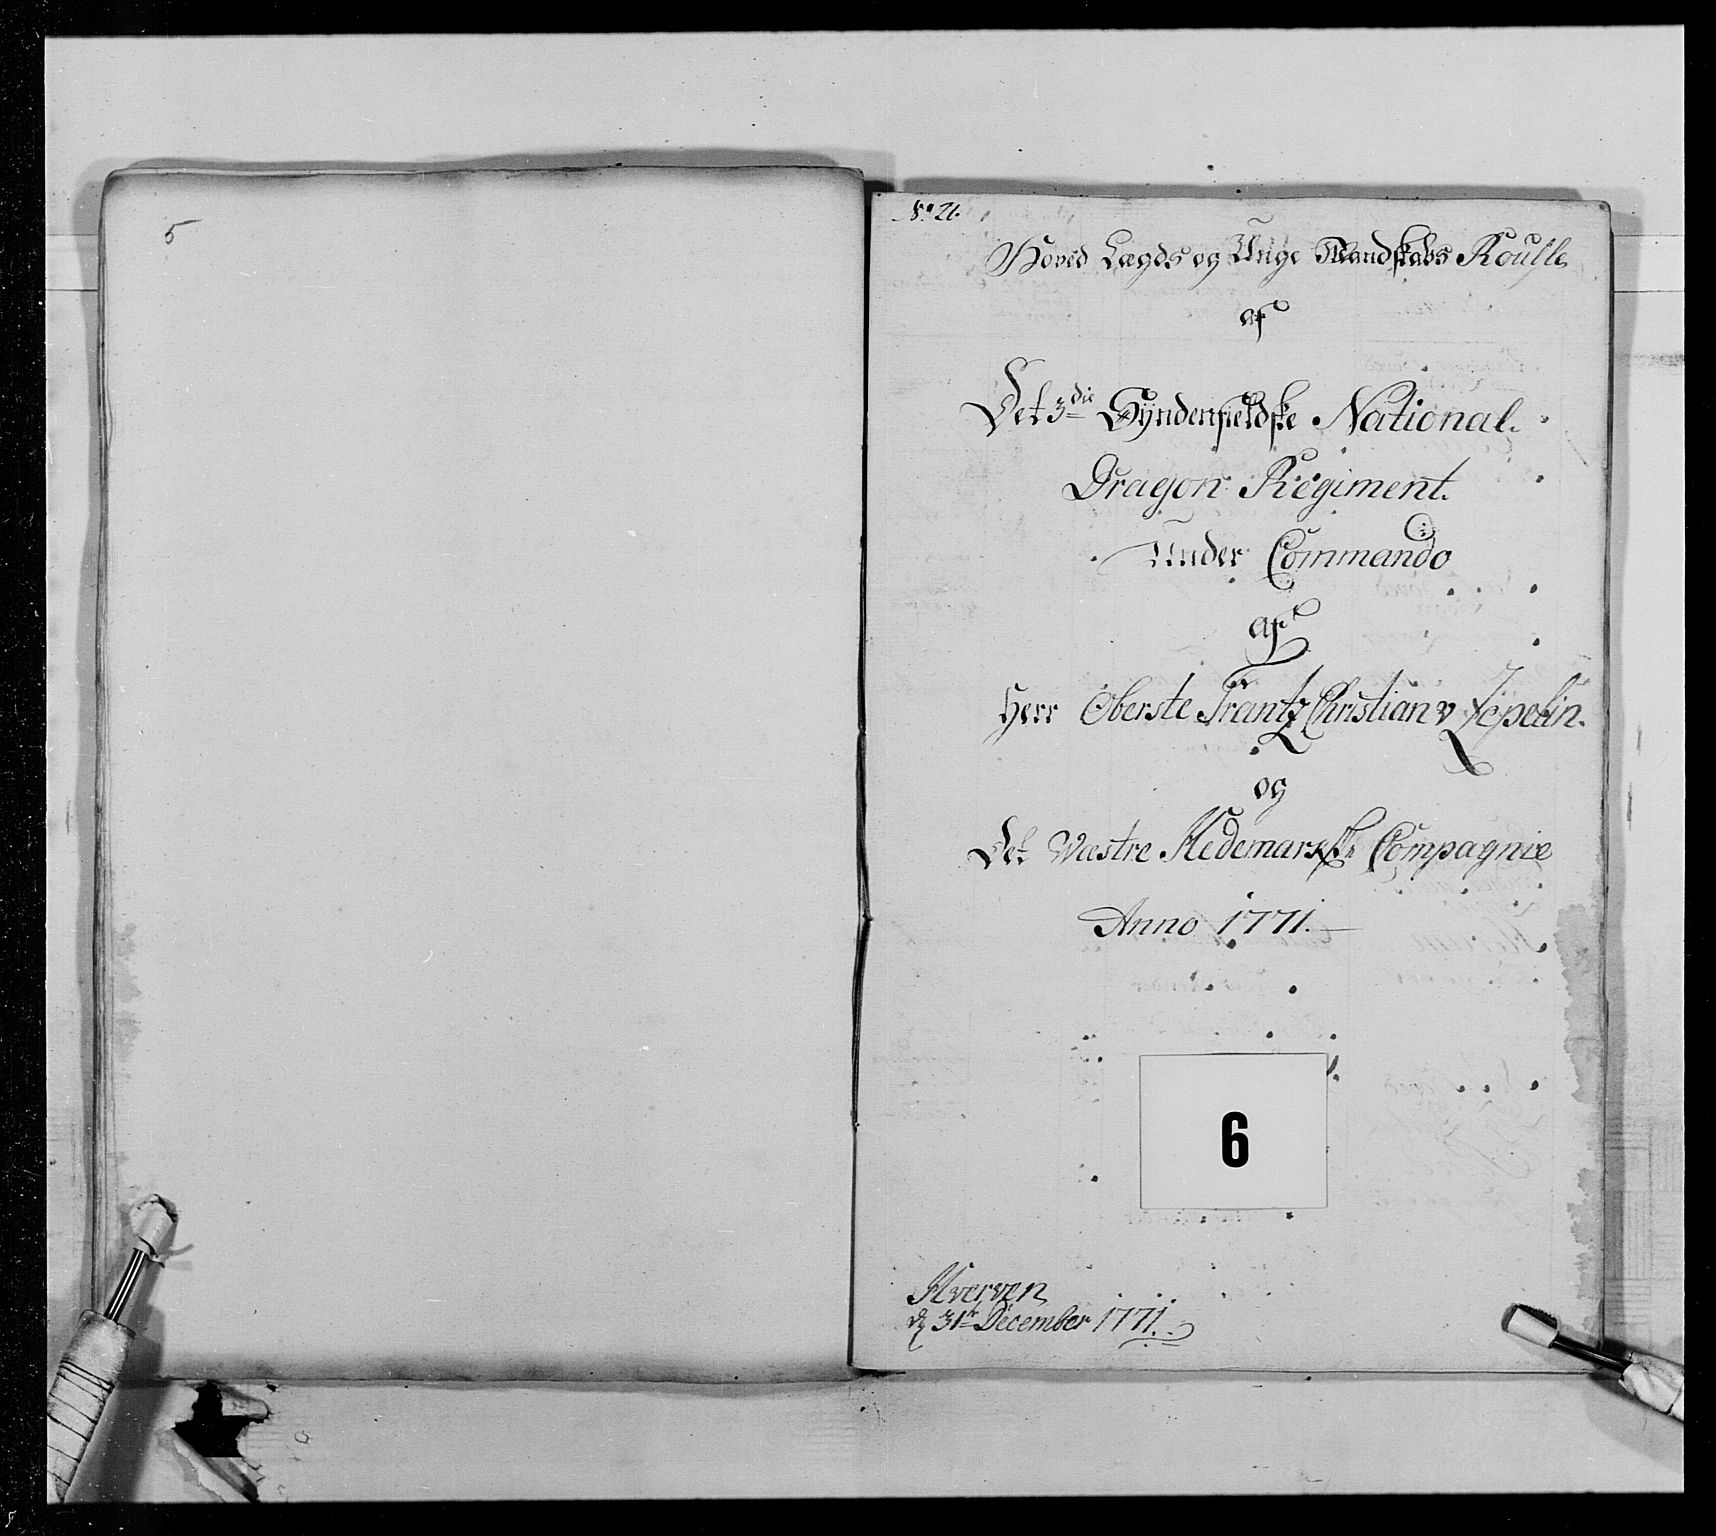 5
No 21.
Hoved Lægds og Unge Mandskabs Roulle
af
Det 3die Syndenfieldske National.
Dragon Regiment.
Under Commando
af
Herr Oberste Frantz Christian v Zepelin.
og
Det Wæstre Hedemarkske Compagnie
Anno 1771.
6
Hverven
d 31te December 1771.